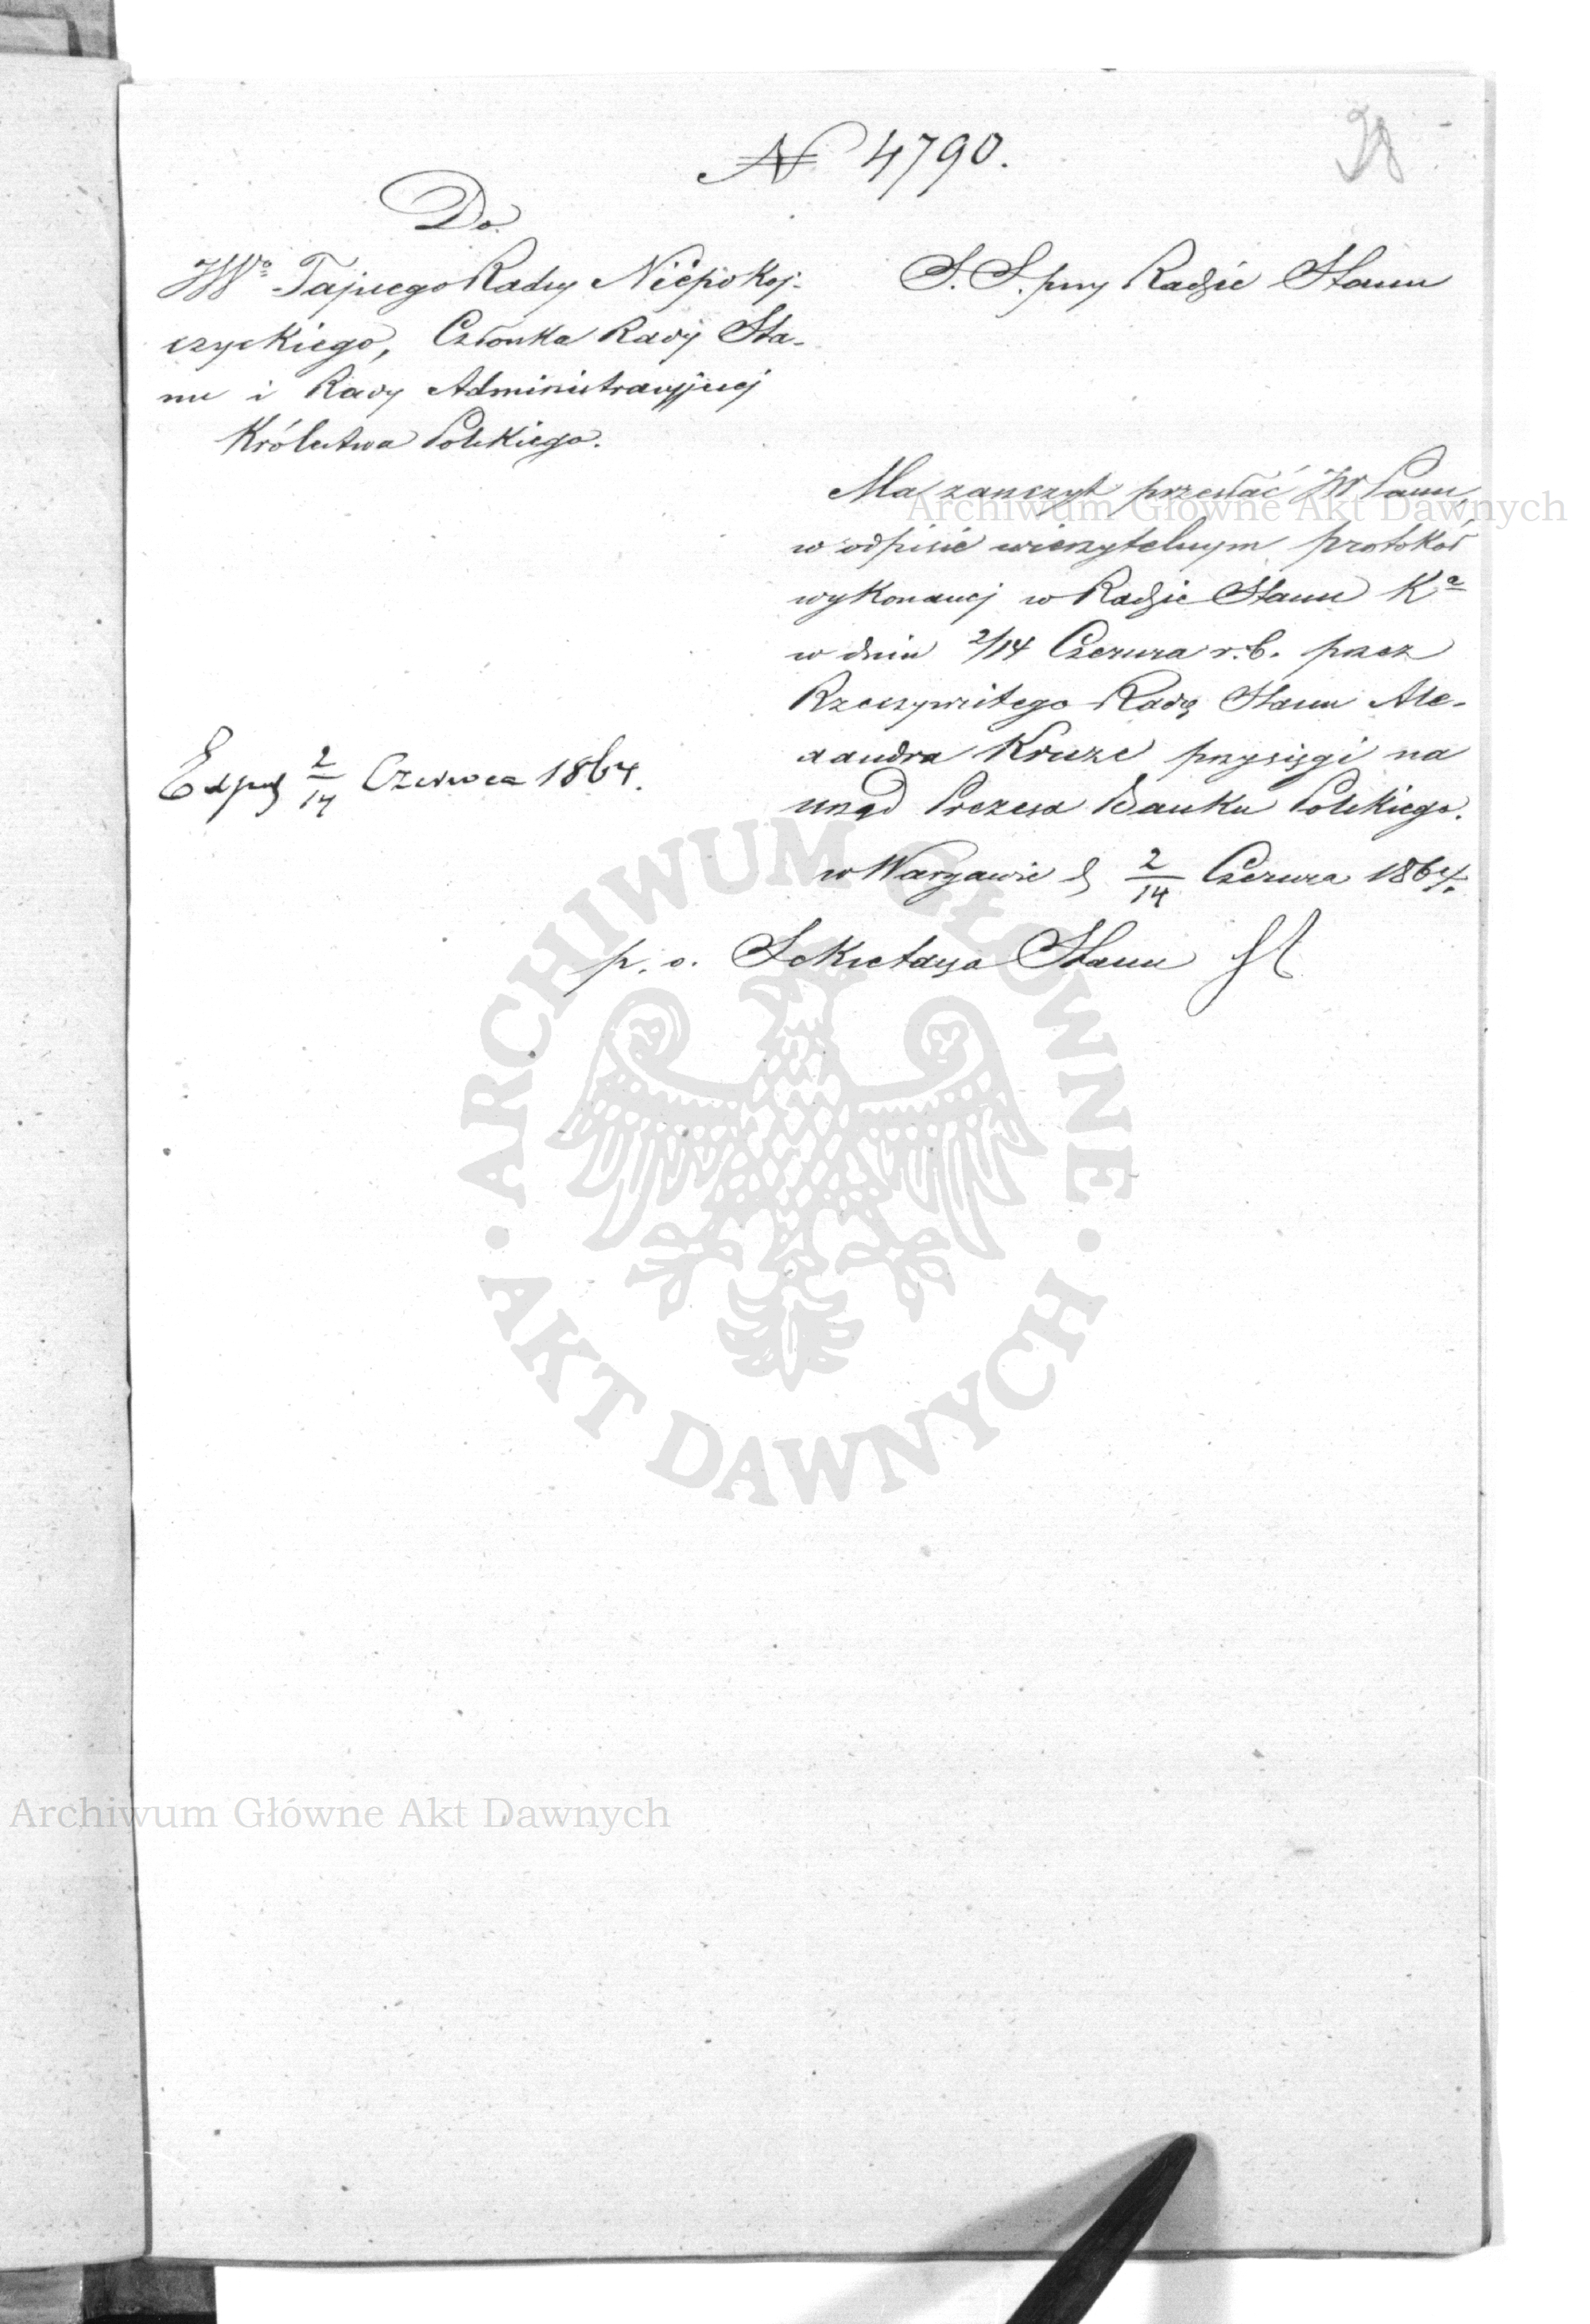 N 4790.
38
Do
JWo Tajnego Radcy Niepokoj-
czyckiego, Członka Rady Sta-
nu i Rady Administracyjnej
Królestwa Polskiego.
S. S. przy Radzie Stanu
Ma zaszczyt przesłać JW Panu,
w odpisie wierzytelnym protokół
wykonanej w Radzie Stanu Ka
w dniu 2/14 Czerwca r. b. przez
Rzeczywistego Radcę Stanu Ale-
xandra Kruze przysięgi na
urząd Prezesa Banku Polskiego.
w Warszawie d 2/14 Czerwca 1864.
p. o. Sekretarza Stanu
Exped 2/14 Czerwca 1864.
Archiwum Główne Akt Dawnych
ARCHIWUM GŁÓWNE
· AKT DAWNYCH ·
Archiwum Główne Akt Dawnych